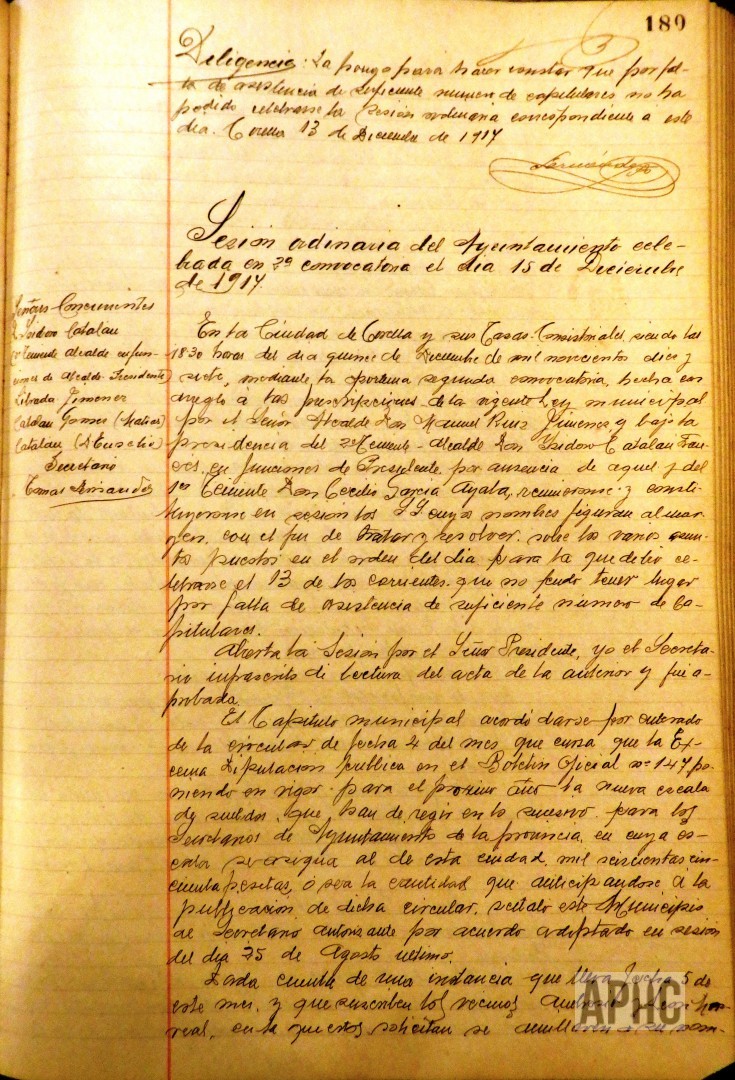 189
Diligencia: La pongo para hacer constar que por fal-
ta de asistencia de suficiente numero de capitulares no ha
podido celebrarse la sesión ordinaria correspondiente a este
dia. Corella 13 de Diciembre de 1917
Fernández
Sesión ordinaria del Ayuntamiento cele-
brada en 2ª convocatoria el dia 15 de Diciembre
de 1917
Señores Concurrentes
D. Isidoro Catalan
2º Teniente Alcalde en fun-
ciones de Alcalde Presidente
Librada Jimenez
Catalan Gomez (Matias)
Catalan (D. Eusebio)
Secretario
Tomas Fernandez
En la Ciudad de Corella y sus Casas Consistoriales, siendo las
18'30 horas del dia quince de Diciembre de mil novecientos diez y
siete, mediante la oportuna segunda convocatoria, hecha con
arreglo a las prescripciones de la vigente Ley municipal
por el Señor Alcalde Don Manuel Ruiz Jimenez y bajo la
presidencia del 2º Teniente Alcalde Don Isidoro Catalan
en funciones de Presidente por ausencia de aquel y del
1er Teniente Don Cecilio Garcia Ayala, reunieronse y consti-
tuyeronse en sesión los SS cuyos nombres figuran al mar-
gen, con el fin de tratar y resolver sobre los varios asun-
tos puestos en el orden del dia para la que debio ce-
lebrarse el 13 de los corrientes que no pudo tener lugar
por falta de asistencia de suficiente número de Ca-
pitulares.
Abierta la Sesión por el Señor Presidente, yo el Secreta-
rio infrascrito di lectura del acta de la anterior y fue a-
probada.
El Capitulo municipal acordó darse por enterado
de la circular de fecha 4 del mes que cursa que la Ex-
cma Diputacion publica en el Boletin Oficial nº 147 po-
niendo en vigor para el proximo año la nueva escala
de sueldos que han de regir en lo sucesivo para los
Secretarios de Ayuntamiento de la provincia, en cuya es-
cala se asigna al de esta ciudad, mil seiscientas cin-
cuenta pesetas, o sea la cantidad que anticipandose a la
publicación de dicha circular, señalo este Municipio
al Secretario autorizante por acuerdo adoptado en sesión
del dia 25 de Agosto ultimo.
Dada cuenta de una instancia que lleva fecha 5 de
este mes, y que suscriben los vecinos
en la que estos solicitan se
APHC